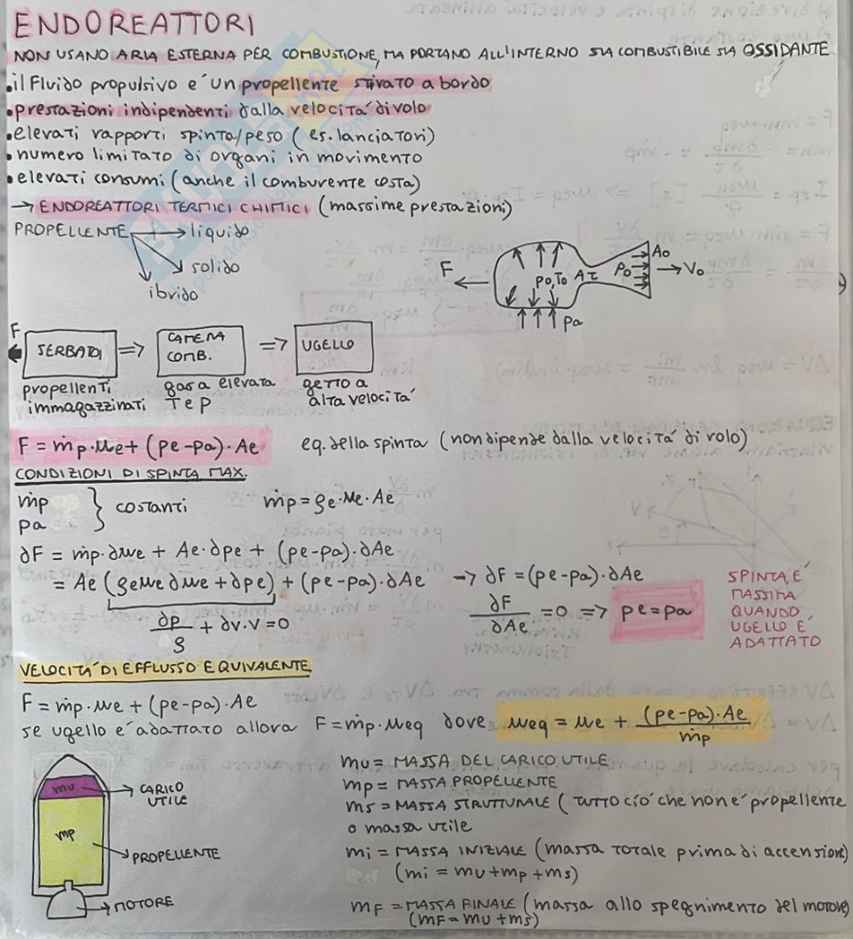 ENDOREATTORI
NON USANO ARIA ESTERNA PER COMBUSTIONE, MA PORTANO ALL'INTERNO SIA COMBUSTIBILE SIA OSSIDANTE
•il fluido propulsivo e' un propellente stivato a bordo
•prestazioni indipendenti dalla velocita' di volo
•elevati rapporti spinta/peso (es. lanciatori)
•numero limitato di organi in movimento
•elevati consumi (anche il comburente costa)
→ ENDOREATTORI TERMICI CHIMICI (massime prestazioni)
PROPELLENTE → liquido
solido
ibrido
F
po,To
Aτ
Po
Ao
Vo
pa
F
SERBATOI ⇒ CAMERA COMB. ⇒ UGELLO
propellenti immagazzinati
gas a elevata T e p
getto a alta velocita'
F = ṁp·ue + (pe-pa)·Ae eq. della spinta (non dipende dalla velocita' di volo)
CONDIZIONI DI SPINTA MAX.
ṁp
pa
} costanti ṁp = ρe·ue·Ae
∂F = ṁp·∂ue + Ae·∂pe + (pe-pa)·∂Ae
= Ae (ρeue∂ue + ∂pe) + (pe-pa)·∂Ae → ∂F = (pe-pa)·∂Ae
∂p/ρ + ∂v·v = 0
∂F/∂Ae = 0 => pe = pa
SPINTA E'
MASSIMA
QUANDO
UGELLO E'
ADATTATO
VELOCITA' DI EFFLUSSO EQUIVALENTE
F = ṁp·ue + (pe-pa)·Ae
se ugello e' adattato allora F = ṁp·ueq dove ueq = ue + (pe-pa)·Ae/ṁp
mu
CARICO
UTILE
mp
PROPELLENTE
MOTORE
mu = MASSA DEL CARICO UTILE
mp = MASSA PROPELLENTE
ms = MASSA STRUTTURALE (TUTTO CIO' CHE NON E' propellente
o massa utile
mi = MASSA INIZIALE (massa totale prima di accensione)
(mi = mu+mp+ms)
mF = MASSA FINALE (massa allo spegnimento del motore)
(mF = mu+ms)